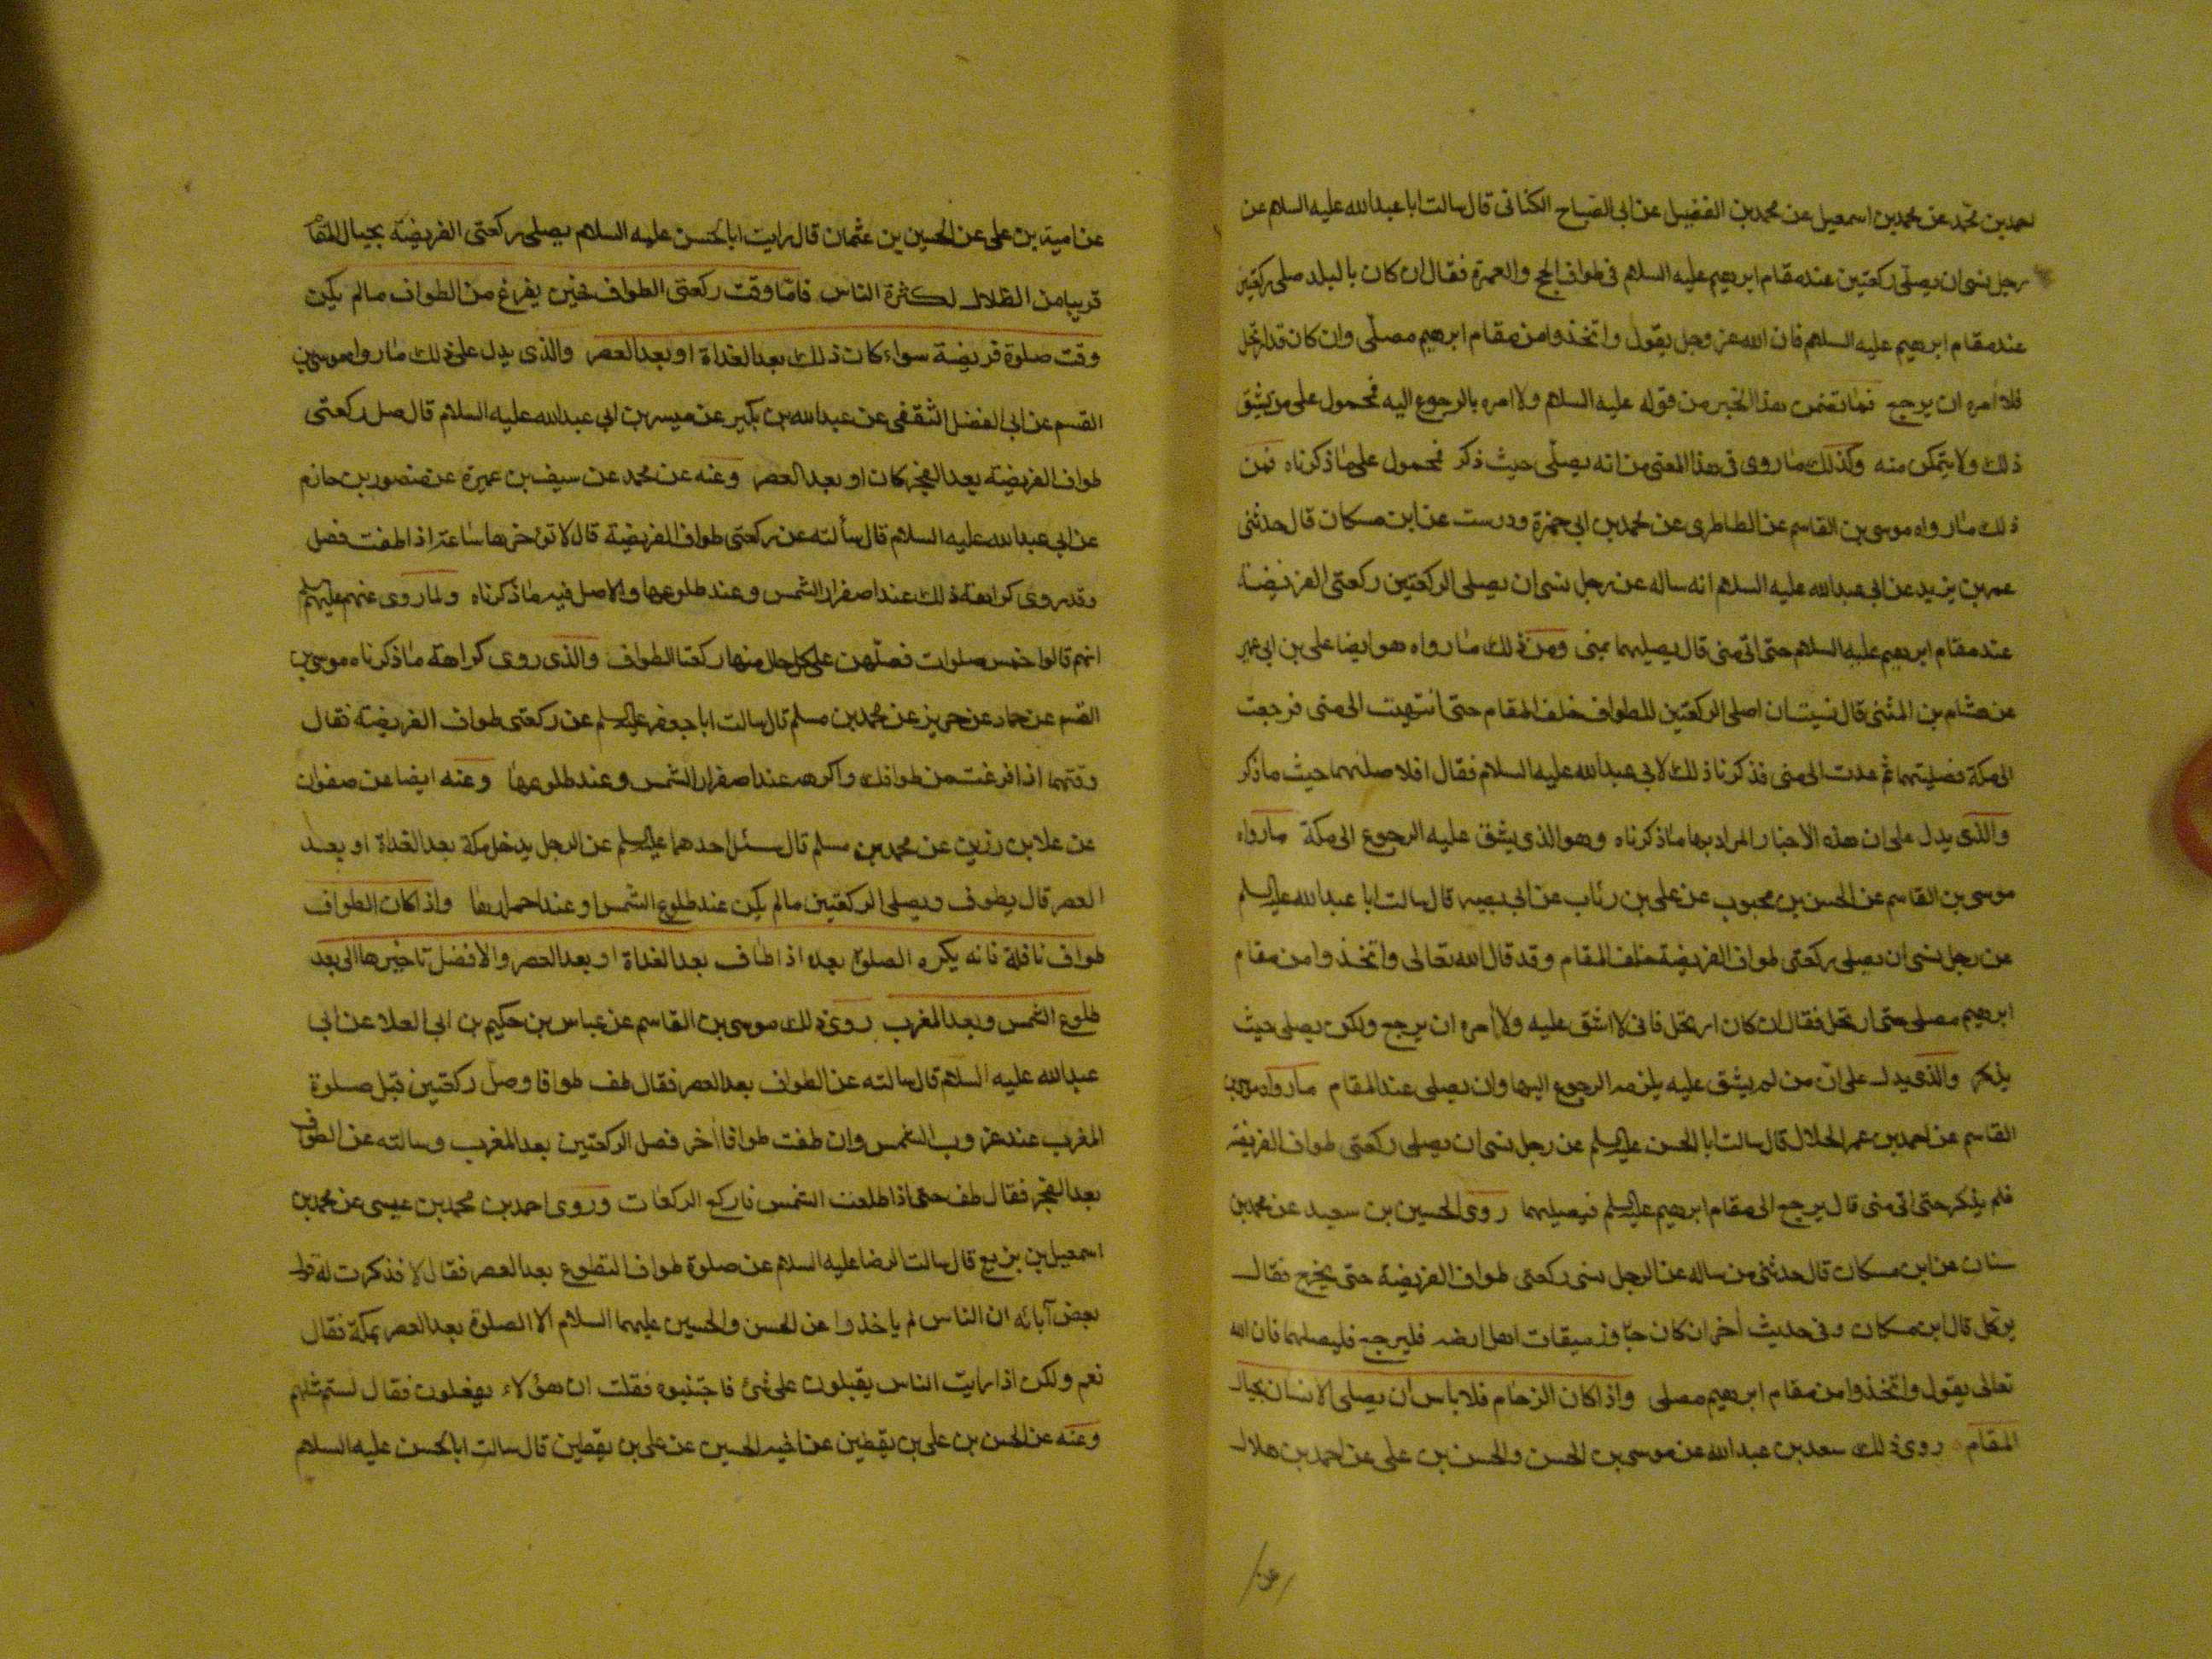 احمد بن محمد عن محمد بن اسمعيل عن محمد بن الفضيل عن ابي الصباح الكناني قال سالت ابا عبد الله عليه السلام عن
رجل نسي ان يصلي ركعتين عند مقام ابرهيم عليه السلام في طواف الحج والعمرة فقال ان كان بالبلد صلى ركعتين
عند مقام ابرهيم عليه السلام فان الله عز وجل يقول واتخذوا من مقام ابرهيم مصلّى وان كان قد ارتحل
فلا آمره ان يرجع فما تضمن هذا الخبر من قوله عليه السلام ولا امره بالرجوع اليه فمحمول على من يشق
ذلك ولا يتمكن منه وكذلك ما روى في هذا المعنى من انه يصلّى حيث ذكر فمحمول على ما ذكرناه فمن
ذلك ما رواه موسى بن القاسم عن الطاطري عن محمد بن ابي حمزة ودرست عن ابن مسكان قال حدثني
عمر بن يزيد عن ابي عبد الله عليه السلام انه ساله عن رجل نسى ان يصلى الركعتين ركعتى الفريضة
عند مقام ابرهيم عليه السلام حتى اتى منى قال يصليهما بمنى ومن ذلك ما رواه هو ايضا على بن ابي عمير
عن هشام بن المثنى قال نسيت ان اصلى الركعتين للطواف خلف المقام حتى انتهيت الى منى فرجعت
الى مكة فصليتهما ثم عدت الى منى فذكرنا ذلك لابي عبد الله عليه السلام فقال افلا صلاهما حيث ما ذكر
والذى يدل على ان هذه الاخبار المراد بها ما ذكرناه وهو الذى يشق عليه الرجوع الى مكة ما رواه
موسى بن القاسم عن الحسن بن محبوب عن على بن رئاب عن ابى بصير قال سالت ابا عبد الله عليه السلم
عن رجل نسى ان يصلى ركعتى طواف الفريضة خلف المقام وقد قال الله تعالى واتخذوا من مقام
ابرهيم مصلى حتى ارتحل فقال ان كان ارتحل فانى لا اشق عليه ولا آمره ان يرجع ولكن يصلى حيث
يذكر والذى يدل على ان من لم يشق عليه يلزمه الرجوع اليها وان يصلى عند المقام ما رواه موسى بن
القاسم عن احمد بن عمر الحلال قال سالت ابا الحسن عليه السلم عن رجل نسى ان يصلى ركعتى طواف الفريضة
فلم يذكر حتى اتى منى قال يرجع الى مقام ابرهيم عليه السلم فيصليهما روى الحسين بن سعيد عن محمد بن
سنان عن ابن مسكان قال حدثنى من ساله عن الرجل نسى ركعتى طواف الفريضة حتى يخرج فقال
يوكّل قال ابن مسكان وفى حديث آخر ان كان جاوز ميقات اهل ارضه فليرجع فليصلهما فان الله
تعالى يقول واتخذوا من مقام ابرهيم مصلى واذا كان الزحام فلا باس ان يصلى الانسان بحيال
المقام روى ذلك سعد بن عبد الله عن موسى بن الحسن والحسن بن على عن احمد بن هلال
عن
عن امية بن على عن الحسين بن عثمان قال رايت ابا الحسن عليه السلام يصلى ركعتى الفريضة بحيال المقام
قريبا من الظلال لكثرة الناس فاما وقت ركعتى الطواف فحين يفرغ من الطواف ما لم يكن
وقت صلوة فريضة سواء كان ذلك بعد الغداة او بعد العصر والذى يدل على ذلك ما رواه موسى بن
القسم عن ابى الفضل الثقفى عن عبد الله بن بكير عن ميسر بن ابى عبد الله عليه السلام قال صل ركعتى
طواف الفريضة بعد الفجر كان او بعد العصر وعنه عن محمد عن سيف بن عميرة عن منصور بن حازم
عن ابى عبد الله عليه السلام قال سألته عن ركعتى طواف الفريضة قال لا تؤخرها ساعة اذا طفت فصل
وقد روى كراهة ذلك عند اصفرار الشمس وعند طلوعها والاصل فيه ما ذكرناه ولما روى عنهم عليهم السلم
انهم قالوا خمس صلوات تصلّهن على كل حال منها ركعتا الطواف والذى روى كراهة ما ذكرناه موسى بن
القسم عن حماد عن حريز عن محمد بن مسلم قال سالت ابا جعفر عليه السلم عن ركعتى طواف الفريضة فقال
وقتهما اذا فرغت من طوافك واكرهه عند اصفرار الشمس وعند طلوعها وعنه ايضا عن صفوان
عن علا بن رزين عن محمد بن مسلم قال سئل احدهما عليه السلم عن الرجل يدخل مكة بعد الغداة او بعد
العصر قال يطوف ويصلى الركعتين ما لم يكن عند طلوع الشمس او عند احمرارها واذا كان الطواف
طواف نافلة فانه يكره الصلوة بعده اذا طاف بعد الغداة او بعد العصر والافضل تاخيرها الى بعد
طلوع الشمس وبعد المغرب روى ذلك موسى بن القاسم عن عباس بن حكيم بن ابى العلا عن ابى
عبد الله عليه السلام قال سالته عن الطواف بعد العصر فقال طف طوافا وصلّ ركعتين قبل صلوة
المغرب عند غروب الشمس وان طفت طوافا آخر فصل الركعتين بعد المغرب وسالته عن الطواف
بعد الفجر فقال طف حتى اذا طلعت الشمس فاركع الركعات وروى احمد بن محمد بن عيسى عن محمد بن
اسمعيل بن بزيع قال سالت الرضا عليه السلام عن صلوة طواف التطوع بعد العصر فقال لا فذكرت له قول
بعض آبائه ان الناس لم ياخذوا عن الحسن والحسين عليهما السلام الا الصلوة بعد العصر بمكة فقال
نعم ولكن اذا رايت الناس يقبلون على شئ فاجتنبوه فقلت ان هؤلاء يفعلون فقال لستم مثلهم
وعنه عن الحسن بن على بن يقطين عن اخيه الحسين عن على بن يقطين قال سالت ابا الحسن عليه السلام